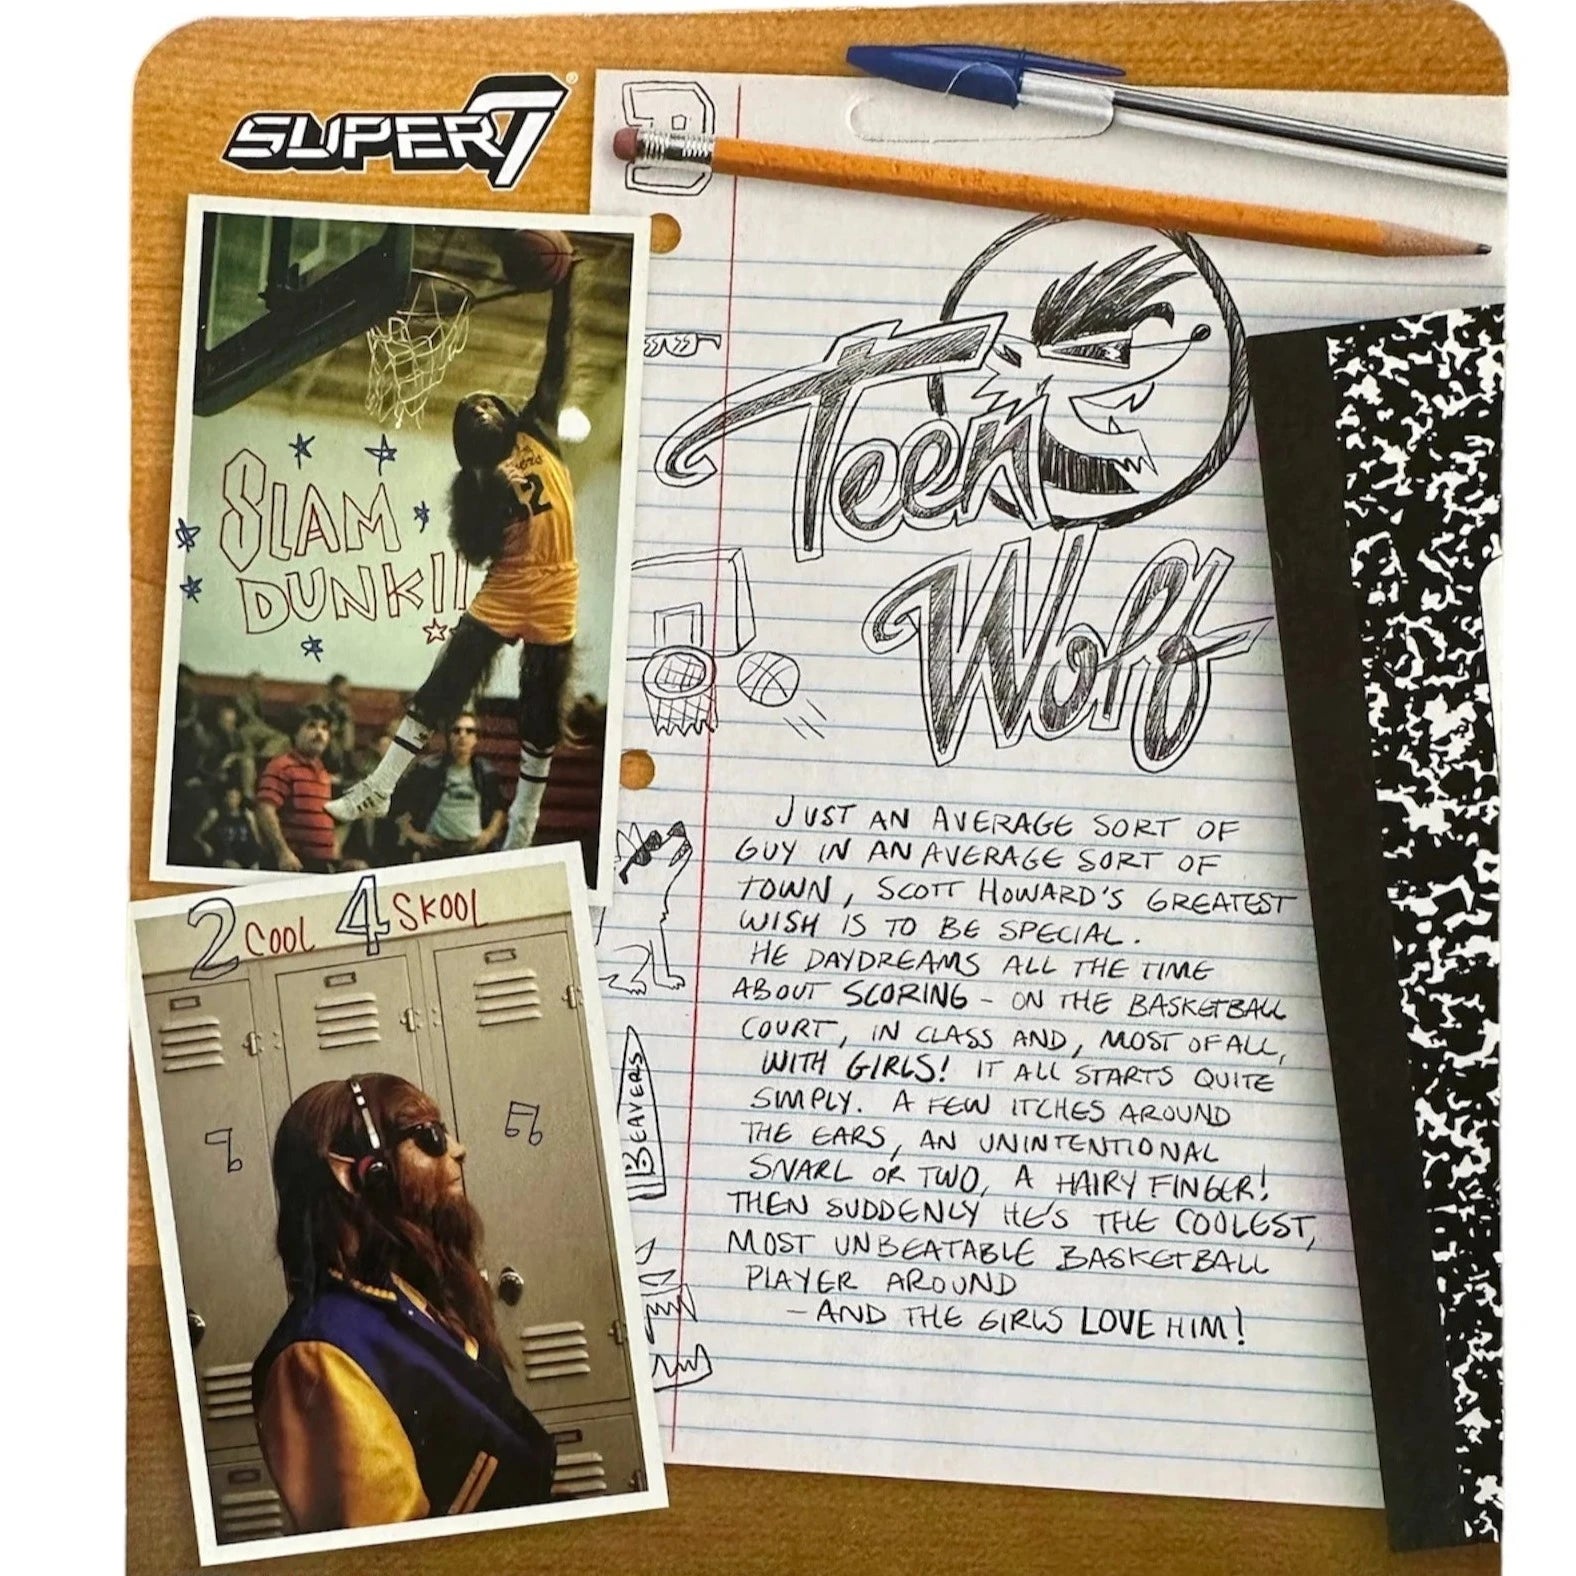 SUPER7®
Teen
Wolf
SLAM
DUNK!!
2 COOL 4 SKOOL
BEAVERS
JUST AN AVERAGE SORT OF
GUY IN AN AVERAGE SORT OF
TOWN, SCOTT HOWARD'S GREATEST
WISH IS TO BE SPECIAL.
HE DAYDREAMS ALL THE TIME
ABOUT SCORING - ON THE BASKETBALL
COURT, IN CLASS AND, MOST OF ALL,
WITH GIRLS! IT ALL STARTS QUITE
SIMPLY. A FEW ITCHES AROUND
THE EARS, AN UNINTENTIONAL
SNARL OR TWO, A HAIRY FINGER!
THEN SUDDENLY HE'S THE COOLEST,
MOST UNBEATABLE BASKETBALL
PLAYER AROUND
- AND THE GIRLS LOVE HIM!